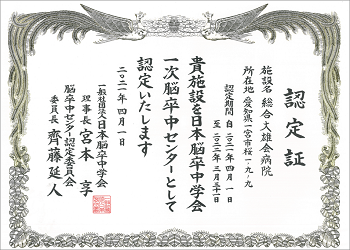 認定証
施設名 総合大雄会病院
所在地 愛知県一宮市桜一-九-九
認定期間 自 二〇二一年四月一日
至 二〇二二年三月三十一日
貴施設を日本脳卒中学会
一次脳卒中センターとして
認定いたします
二〇二一年四月一日
一般社団法人日本脳卒中学会
理事長 宮本 享
脳卒中センター認定委員会
委員長 齊藤延人